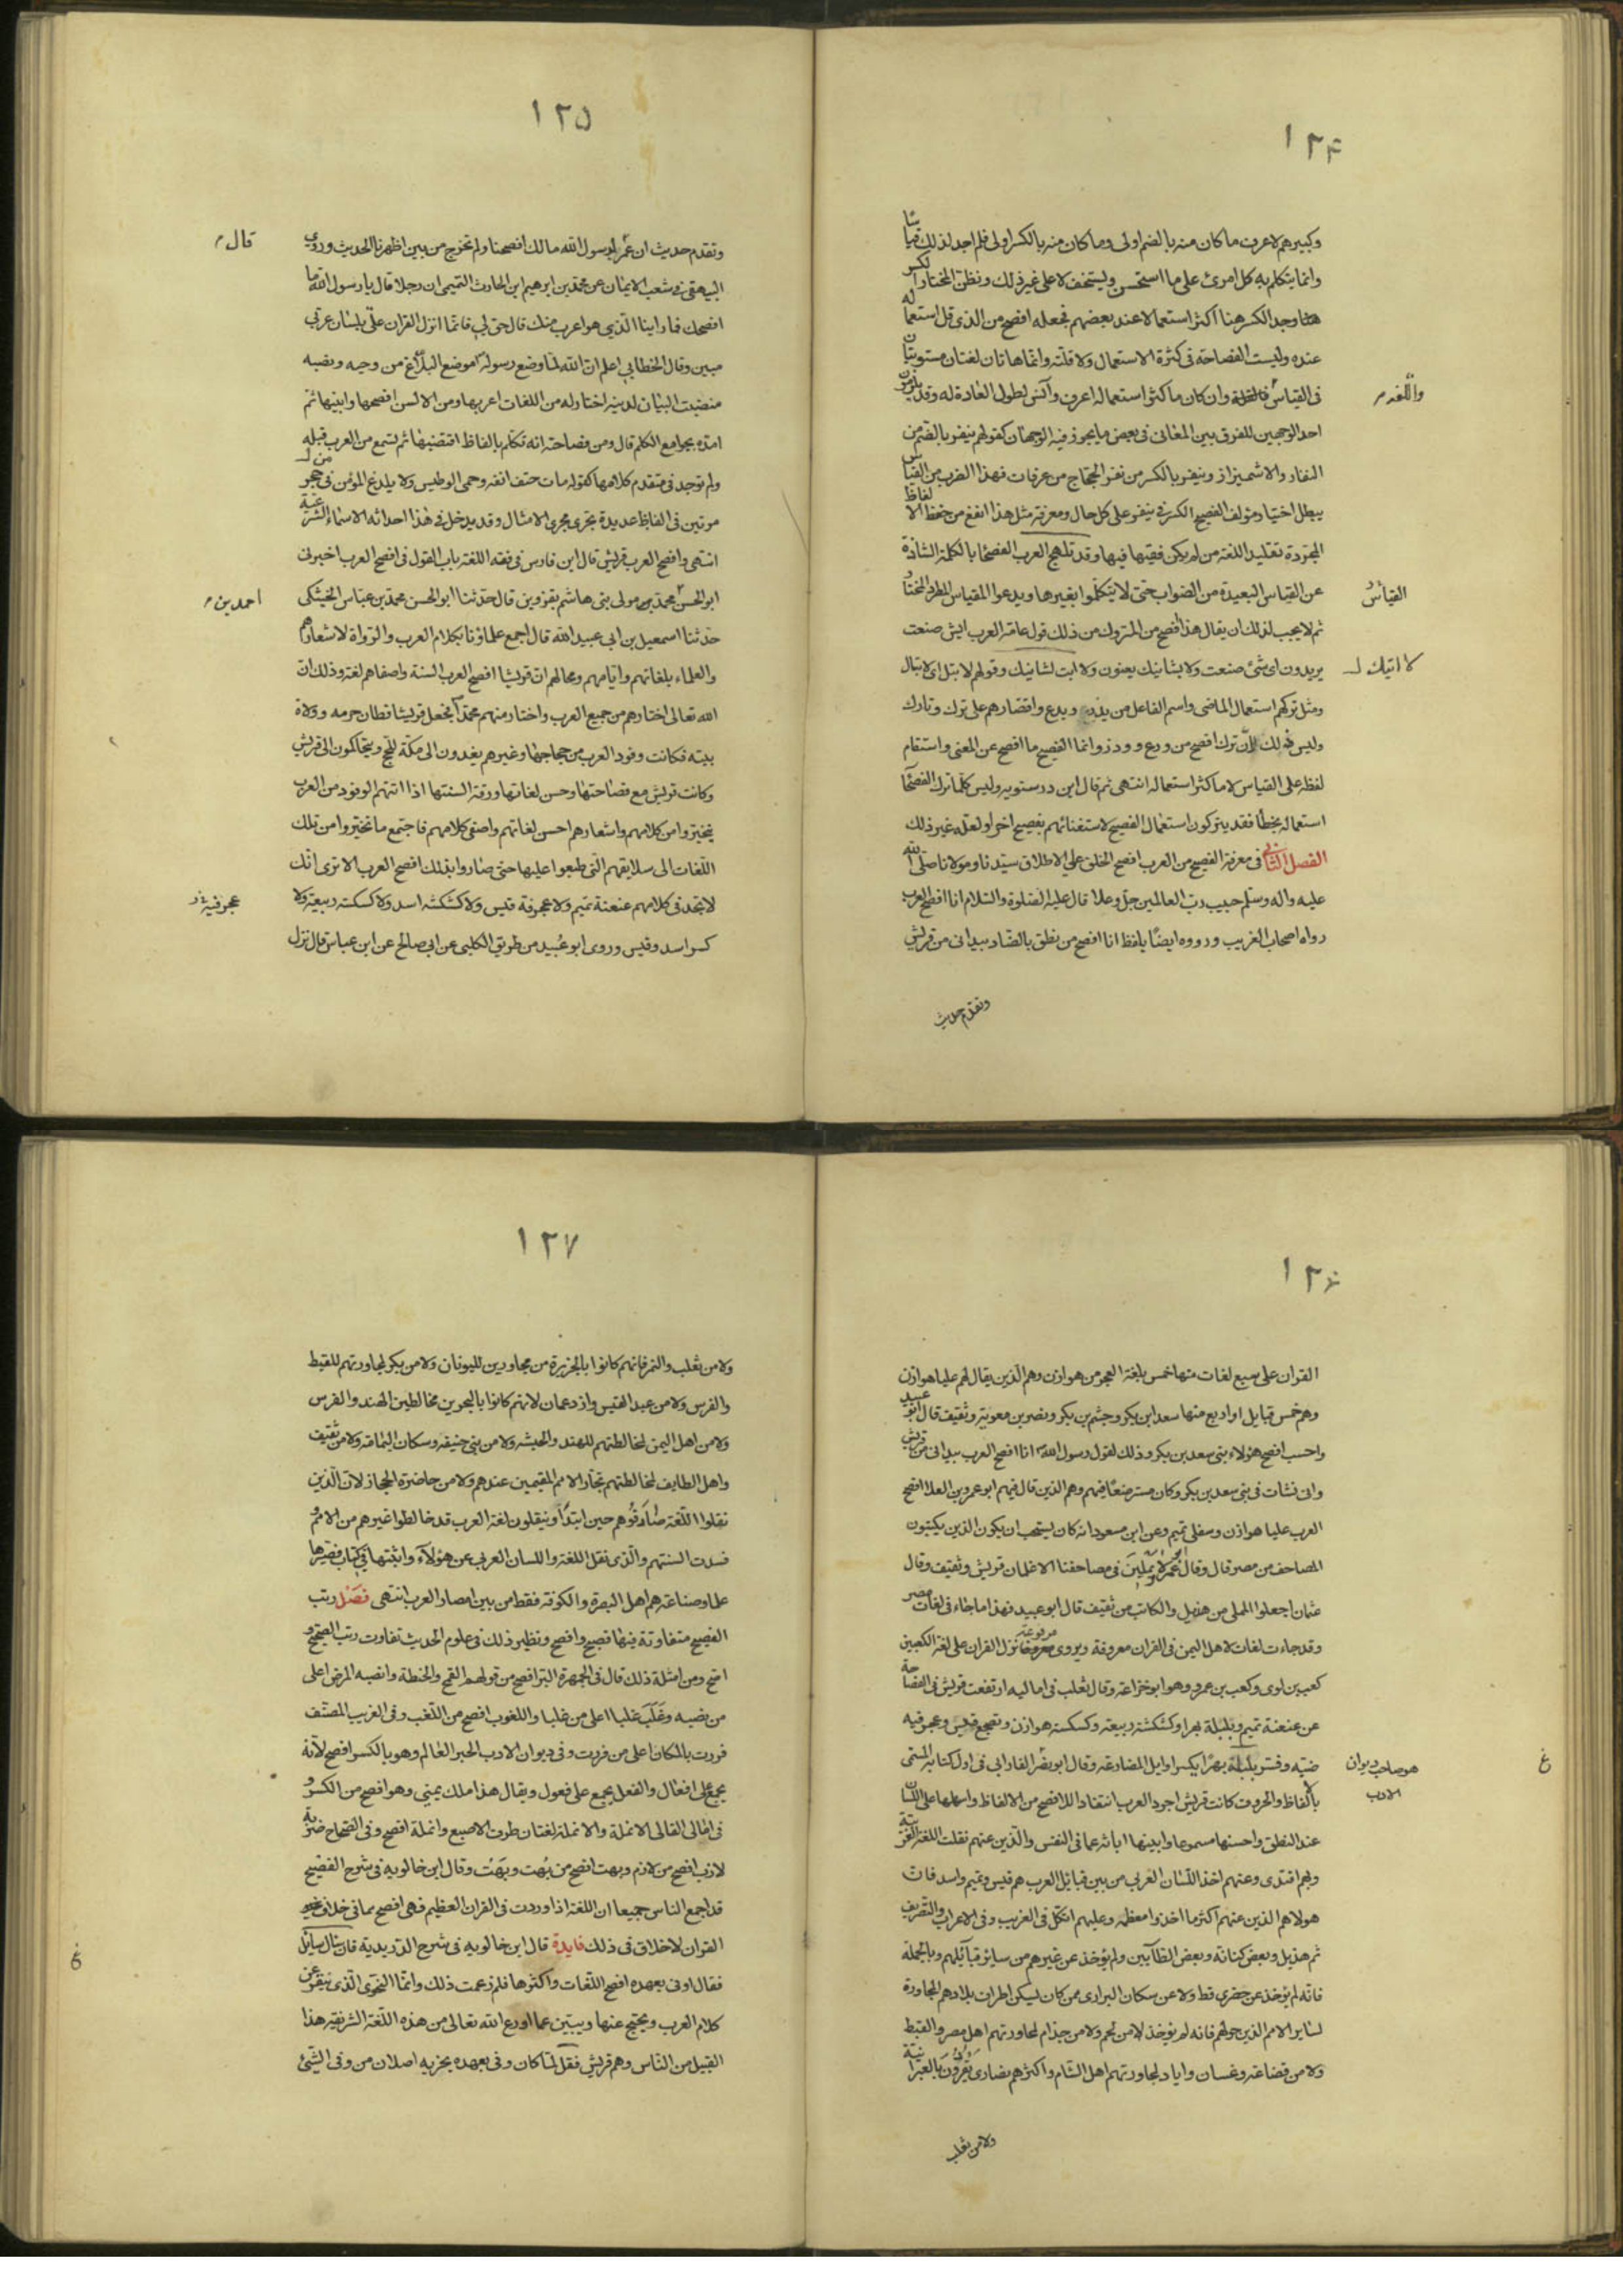 ١٢٤
وكبيرهم لاعرف ما كان منه بالضم اولى وما كان منه بالكسر اولى فلم اجد لذلك قياسًا
وانما يتكلم به كل امرئ على ما استحسن ويستخف لا على غير ذلك ونظن المختار الكسر
هنا وجد الكسر هنا اكثر استعمالا عند بعضهم فجعله افصح من الذى قل استعماله
عنده وليست الفصاحة فى كثرة الاستعمال ولا قلته وانما هاتان لغتان مستويتان
فى القياس والعلة وان كان ما كثر استعماله اعرف وآنس لطول العادة له وقد يلزمون
واللغة م
احد الوجهين للفرق بين المعانى فى بعض ما يجوز فيه الوجهان كقولهم ينفر بالضم من
النفار والاشميزاز وينفر بالكسر من نفر الحجاج من عرفات فهذا الضرب من القياس
يبطل اختيار مؤلف الفصيح الكسر فى ينفر على كل حال ومعرفة مثل هذا انفع من حفظ الالفاظ
المجرّدة تقليد اللغة من لم يكن فقيها فيها وقد تلهج العرب الفصحا بالكلمة الشاذة
عن القياس البعيدة من الصواب حتى لا يتكلموا بغيرها ويدعوا المقياس المطرد المختار
القياس
ثم لا يجب لذلك ان يقال هذا افصح من المتروك من ذلك قول عامة العرب ايش صنعت
يريدون اى شئ صنعت ولا بشانيك يعنون ولا ابت لشانيك وقولهم لا تبل اى لا تبال
لا اتيك
ومثل تركهم استعمال الماضى واسم الفاعل من يذر ويدع واقتصارهم على ترك وتارك
وليس ذلك لأن ترك افصح من ودع ووذر وانما الفصيح ما افصح عن المعنى واستقام
لفظه على القياس لا ما كثر استعماله انتهى ثم قال ابن درستويه وليس كلما ترك الفصحآ
استعماله بخطأ فقد يتركون استعمال الفصيح لاستغنائهم بفصيح اخر او لعلة غير ذلك
الفصل الثانى فى معرفة الفصيح من العرب افصح الخلق على الاطلاق سيدنا ومولانا صلى الله
عليه واله وسلم حبيب رب العالمين جل وعلا قال عليه الصلوة والسلام انا افصح العرب
رواه اصحاب الغريب ورووه ايضًا بلفظ انا افصح من نطق بالضاد بيد انى من قريش
وتقدم حديث
١٢٥
وتقدم حديث ان عمر يا رسول الله مالك افصحنا ولم تخرج من بين اظهرنا الحديث وروى
قال م
البيهقى فى شعب الايمان عن محمد بن ابرهيم ابن الحارث التيمى ان رجلا قال يا رسول الله ما
افصحك فما راينا الذي هو اعرب منك قال حق لى فانما انزل القران علىّ بلسان عربي
مبين وقال الخطابي اعلم ان الله لما وضع رسوله موضع البلاغ من وحيه ونصبه
منصب البيان لدينه اختار له من اللغات اعربها ومن الالسن افصحها وابينها ثم
امده بجوامع الكلم قال ومن فصاحته انه تكلم بالفاظ اقتضبها ثم تسمع من العرب قبله
ولم توجد فى متقدم كلامها كقوله مات حتف انفه وحمى الوطيس ولا يلدغ المؤمن من حجر
مرتين فى الفاظ عديدة تجرى مجرى الامثال وقد يدخل فى هذا احداثه الاسماء الشرعية
انتهى وافصح العرب قريش قال ابن فارس فى فقه اللغة باب القول فى افصح العرب اخبرنى
ابو الحسن محمد بن مولى بنى هاشم بقزوين قال حدثنا ابو الحسن محمد بن عباس الخشكى
احمد بن م
حدثنا اسمعيل بن ابى عبيد الله قال اجمع علماؤنا بكلام العرب والرواة لاشعارهم
والعلماء بلغاتهم وايامهم ومحالهم ان قريشا افصح العرب السنة واصفاهم لغة وذلك ان
الله تعالى اختارهم من جميع العرب واختار منهم محمدًا فجعل قريشا قطان حرمه وولاة
بيته فكانت وفود العرب من حجاجها وغيرهم يفدون الى مكة للحج ويتحاكمون الى قريش
وكانت قريش مع فصاحتها وحسن لغاتها ورقة السنتها اذا اتتهم الوفود من العرب
يخيّروا من كلامهم واشعارهم احسن لغاتهم واصفى كلامهم فاجتمع ما تخيروا من تلك
اللغات الى سلايقهم التى طبعوا عليها حتى صاروا بذلك افصح العرب الا ترى انك
لا تجد فى كلامهم عنعنة تميم ولا عجرفة قيس ولا كشكشة اسد ولا كسكسة ربيعة ولا
عجرفية
كسر اسد وقيس وروى ابو عبيد من طريق الكلبى عن ابى صالح عن ابن عباس قال نزل
١٢٦
القران على سبع لغات منها خمس بلغة العجز من هوازن وهم الذين يقال لهم عليا هوازن
وهم خمس قبايل او اربع منها سعد ابن بكر وجشم بن بكر ونصر بن معوية وثقيف قال ابو عبيد
واحسب افصح هؤلاء بنى سعد بن بكر وذلك لقول رسول الله انا افصح العرب بيد انى من قريش
وانى نشات فى بنى سعد بن بكر وكان مسترضعًا فيهم وهم الذين قال فيهم ابو عمرو بن العلا افصح
العرب عليا هوازن وسفلى تميم وعن ابن مسعود انه كان يستحب ان يكون الذين يكتبون
المصاحف من مضر قال وقال عمر لا يملين فى مصاحفنا الا غلمان قريش وثقيف وقال
عثمان اجعلوا المملى من هذيل والكاتب من ثقيف قال ابو عبيد فهذا ما جاء فى لغات مضر
وقد جاءت لغات لاهل اليمن فى القران معروفة ويروى مرفوعًا نزل القران على لغة الكعبين
كعب بن لوى وكعب بن عمرو وهو ابو خزاعة وقال ثعلب فى اماليه ارتفعت قريش فى الفصاحة
عن عنعنة تميم وبلبلة بهرا وكشكشة ربيعة وكسكسة هوازن وتضجع قيس وعجرفيه
ضبّه وفسر بلبلة بهرًا بكسر اوايل المضارعة وقال ابو نصر الفارابى فى اول كتابه المسمى
هو صاحب ديوان الادب
غ
بالألفاظ والحروف كانت قريش اجود العرب انتقادا للافصح من الالفاظ واسهلها على اللسان
عند النطق واحسنها مسموعا وابينها ابانة عما فى النفس والذين عنهم نقلت اللغة العربية
وبهم اقتدى وعنهم اخذ اللسان العربي من بين قبايل العرب هم قيس وتميم واسد فان
هولا هم الذين عنهم اكثر ما اخذ ومعظمه وعليهم اتكل فى الغريب وفى الاعراب والتصريف
ثم هذيل وبعض كنانة وبعض الطآيين ولم يؤخذ عن غيرهم من ساير قبآيلهم وبالجملة
فانه لم يؤخذ عن حضرى قط ولا عن سكان البرارى ممن كان يسكن اطراف بلادهم المجاورة
لساير الامم الذين حولهم فانه لم يؤخذ لا من لخم ولا من جذام لمجاورتهم اهل مصر والقبط
ولا من قضاعة وغسان واياد لمجاورتهم اهل الشام واكثرهم نصارى يقرؤن بالعبرانية
ولا من تغلب
١٢٧
ولا من تغلب والنمر فانهم كانوا بالجزيرة من مجاورين لليونان ولا من بكر لمجاورتهم للقبط
والفرس ولا من عبد القيس وازد عمان لانهم كانوا بالبحرين مخالطين الهند والفرس
ولا من اهل اليمن لمخالطتهم للهند والحبشه ولا من بنى حنيفه وسكان اليمامة ولا من ثقيف
واهل الطايف لمخالطتهم تجار الامم المقيمين عندهم ولا من حاضرة الحجاز لان الذين
نقلوا اللغة صادفوهم حين ابتدأو ينقلون لغة العرب قد خالطوا غيرهم من الامم
فسدت السنتهم والذى نقل اللغة واللسان العربى عن هؤلآء واثبتها فى كتاب فصيرها
علما وصناعة هم اهل البصرة والكوفة فقط من بين امصار العرب انتهى فصل رتب
الفصيح متفاوتة فيها فصيح وافصح ونظير ذلك فى علوم الحديث تفاوت رتب الصحيح
اصح ومن امثلة ذلك قال فى الجمهرة البر افصح من قولهم القمح والحنطة وانصبه المرض اعلى
من نصبه وغلب غلبا اعلى من غلبا واللغوب افصح من اللغب وفى الغريب المصنف
قررت بالمكان اعلى من قررت وفى ديوان الادب الحبر العالم وهو بالكسر افصح لأنه
يجمع على افعال والفعل يجمع على فعول ويقال هذا ملك يمينى وهو افصح من الكسر
فى امالى القالى الانملة والانملة لغتان طرف الاصبع وانملة افصح وفى الصحاح ضربة
لازب افصح من لازم وبهت افصح من بهت وبهت وقال ابن خالويه فى شرح الفصيح
قد اجمع الناس جميعا ان اللغة اذا وردت فى القران العظيم فهى افصح مما فى خلاف غير
القران لا خلاف فى ذلك فايدة قال ابن خالويه فى شرح الدريدية فان سال سايل
غ
فقال اوفى بعهده افصح اللغات واكثرها فلم زعمت ذلك وانما النحوى الذى ينقر عن
كلام العرب ويحتج عنها ويبين عما اودع الله تعالى من هذه اللغة الشريفة هذا
القبيل من الناس وهم قريش فقل لما كان وفى بعهده يجزبه اصلان من وفى الشئ